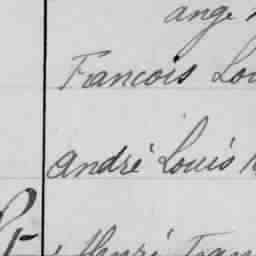 ange
Francois Lou
André Louis
Henri Fran